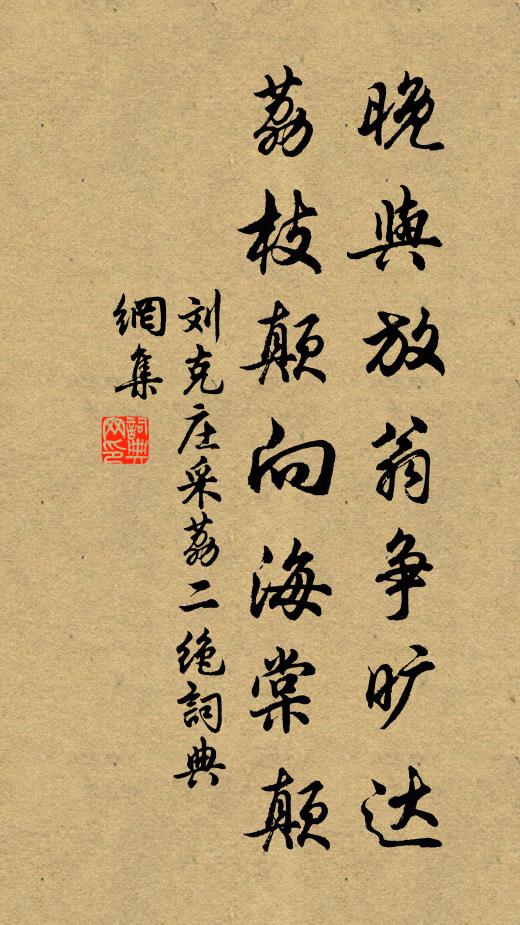 晚與放翁争旷达
荔枝颠向海棠颠
刘克庄采荔二绝詞典
網集
詞典網印